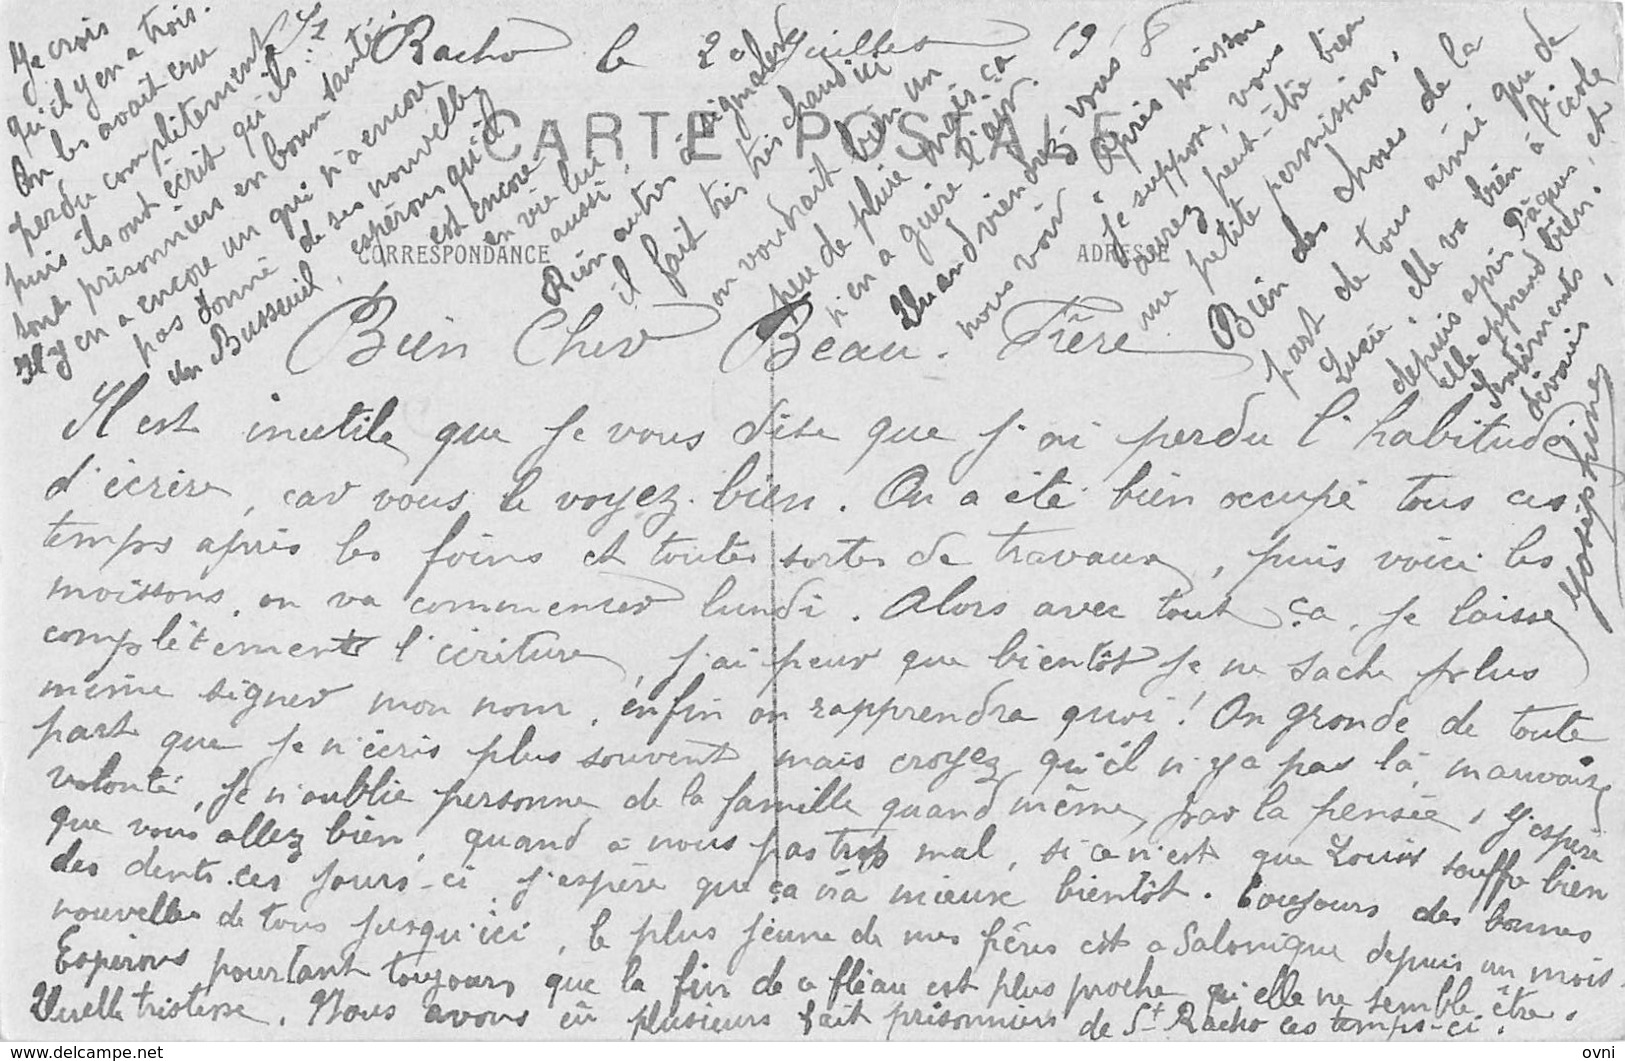 Racho le 20 Juillet 1918
CARTE POSTALE
CORRESPONDANCE
ADRESSE
Bien Cher Beau-Frère
Il est inutile que je vous dise que j'ai perdu l'habitude
d'écrire, car vous le voyez bien. On a été bien occupé tous ces
temps après les foins et toutes sortes de travaux, puis voici les
moissons, on va commencer lundi. Alors avec tout ça, je laisse
complètement l'écriture, j'ai peur que bientôt je ne sache plus
même signer mon nom, enfin on rapprendra quoi! On gronde de toute
part que je n'écris plus souvent mais croyez qu'il n'y a pas là mauvaise
volonté, je n'oublie personne de la famille quand même, par la pensée, j'espère
que vous allez bien, quand à nous pas trop mal, si ce n'est que Louis souffre bien
des dents ces jours-ci, j'espère que ça ira mieux bientôt. Toujours des bonnes
nouvelles de tous jusqu'ici, le plus jeune de mes frères est à Salonique depuis un mois.
Espérons pourtant toujours que la fin de ce fléau est plus proche qu'elle ne semble être.
Quelle tristesse. Nous avons eu plusieurs fait prisonniers de St Racho ces temps-ci.
Je crois
qu'il y en a trois.
On les avait cru
perdu complètement
puis ils ont écrit qu'ils
sont prisonniers en bonne santé
Il y en a encore un qui n'a encore
pas donné de ses nouvelles
un Busseuil, espérons qu'il
est encore
en vie lui
aussi.
Rien autres à signaler
il fait très très chaud ici
on voudrait bien un
peu de pluie mais ça
n'en a guère l'air.
Quand viendrez-vous
nous voir? Après moissons
je suppose, vous
aurez peut-être bien
une petite permission.
Bien des choses de la
part de tous ainsi que de
Lucie, elle va bien à l'école
depuis après Pâques, et
elle apprend bien.
Sentiments
dévoués
Joséphine
delcampe.net
ovni